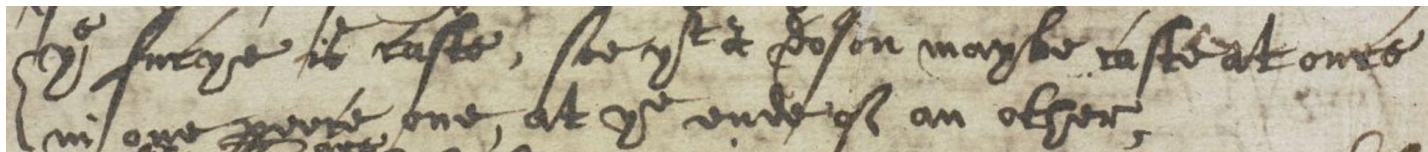 ye furye is caste, soe yt a doson maybe caste at once
in one peece one, at ye ende of an other,